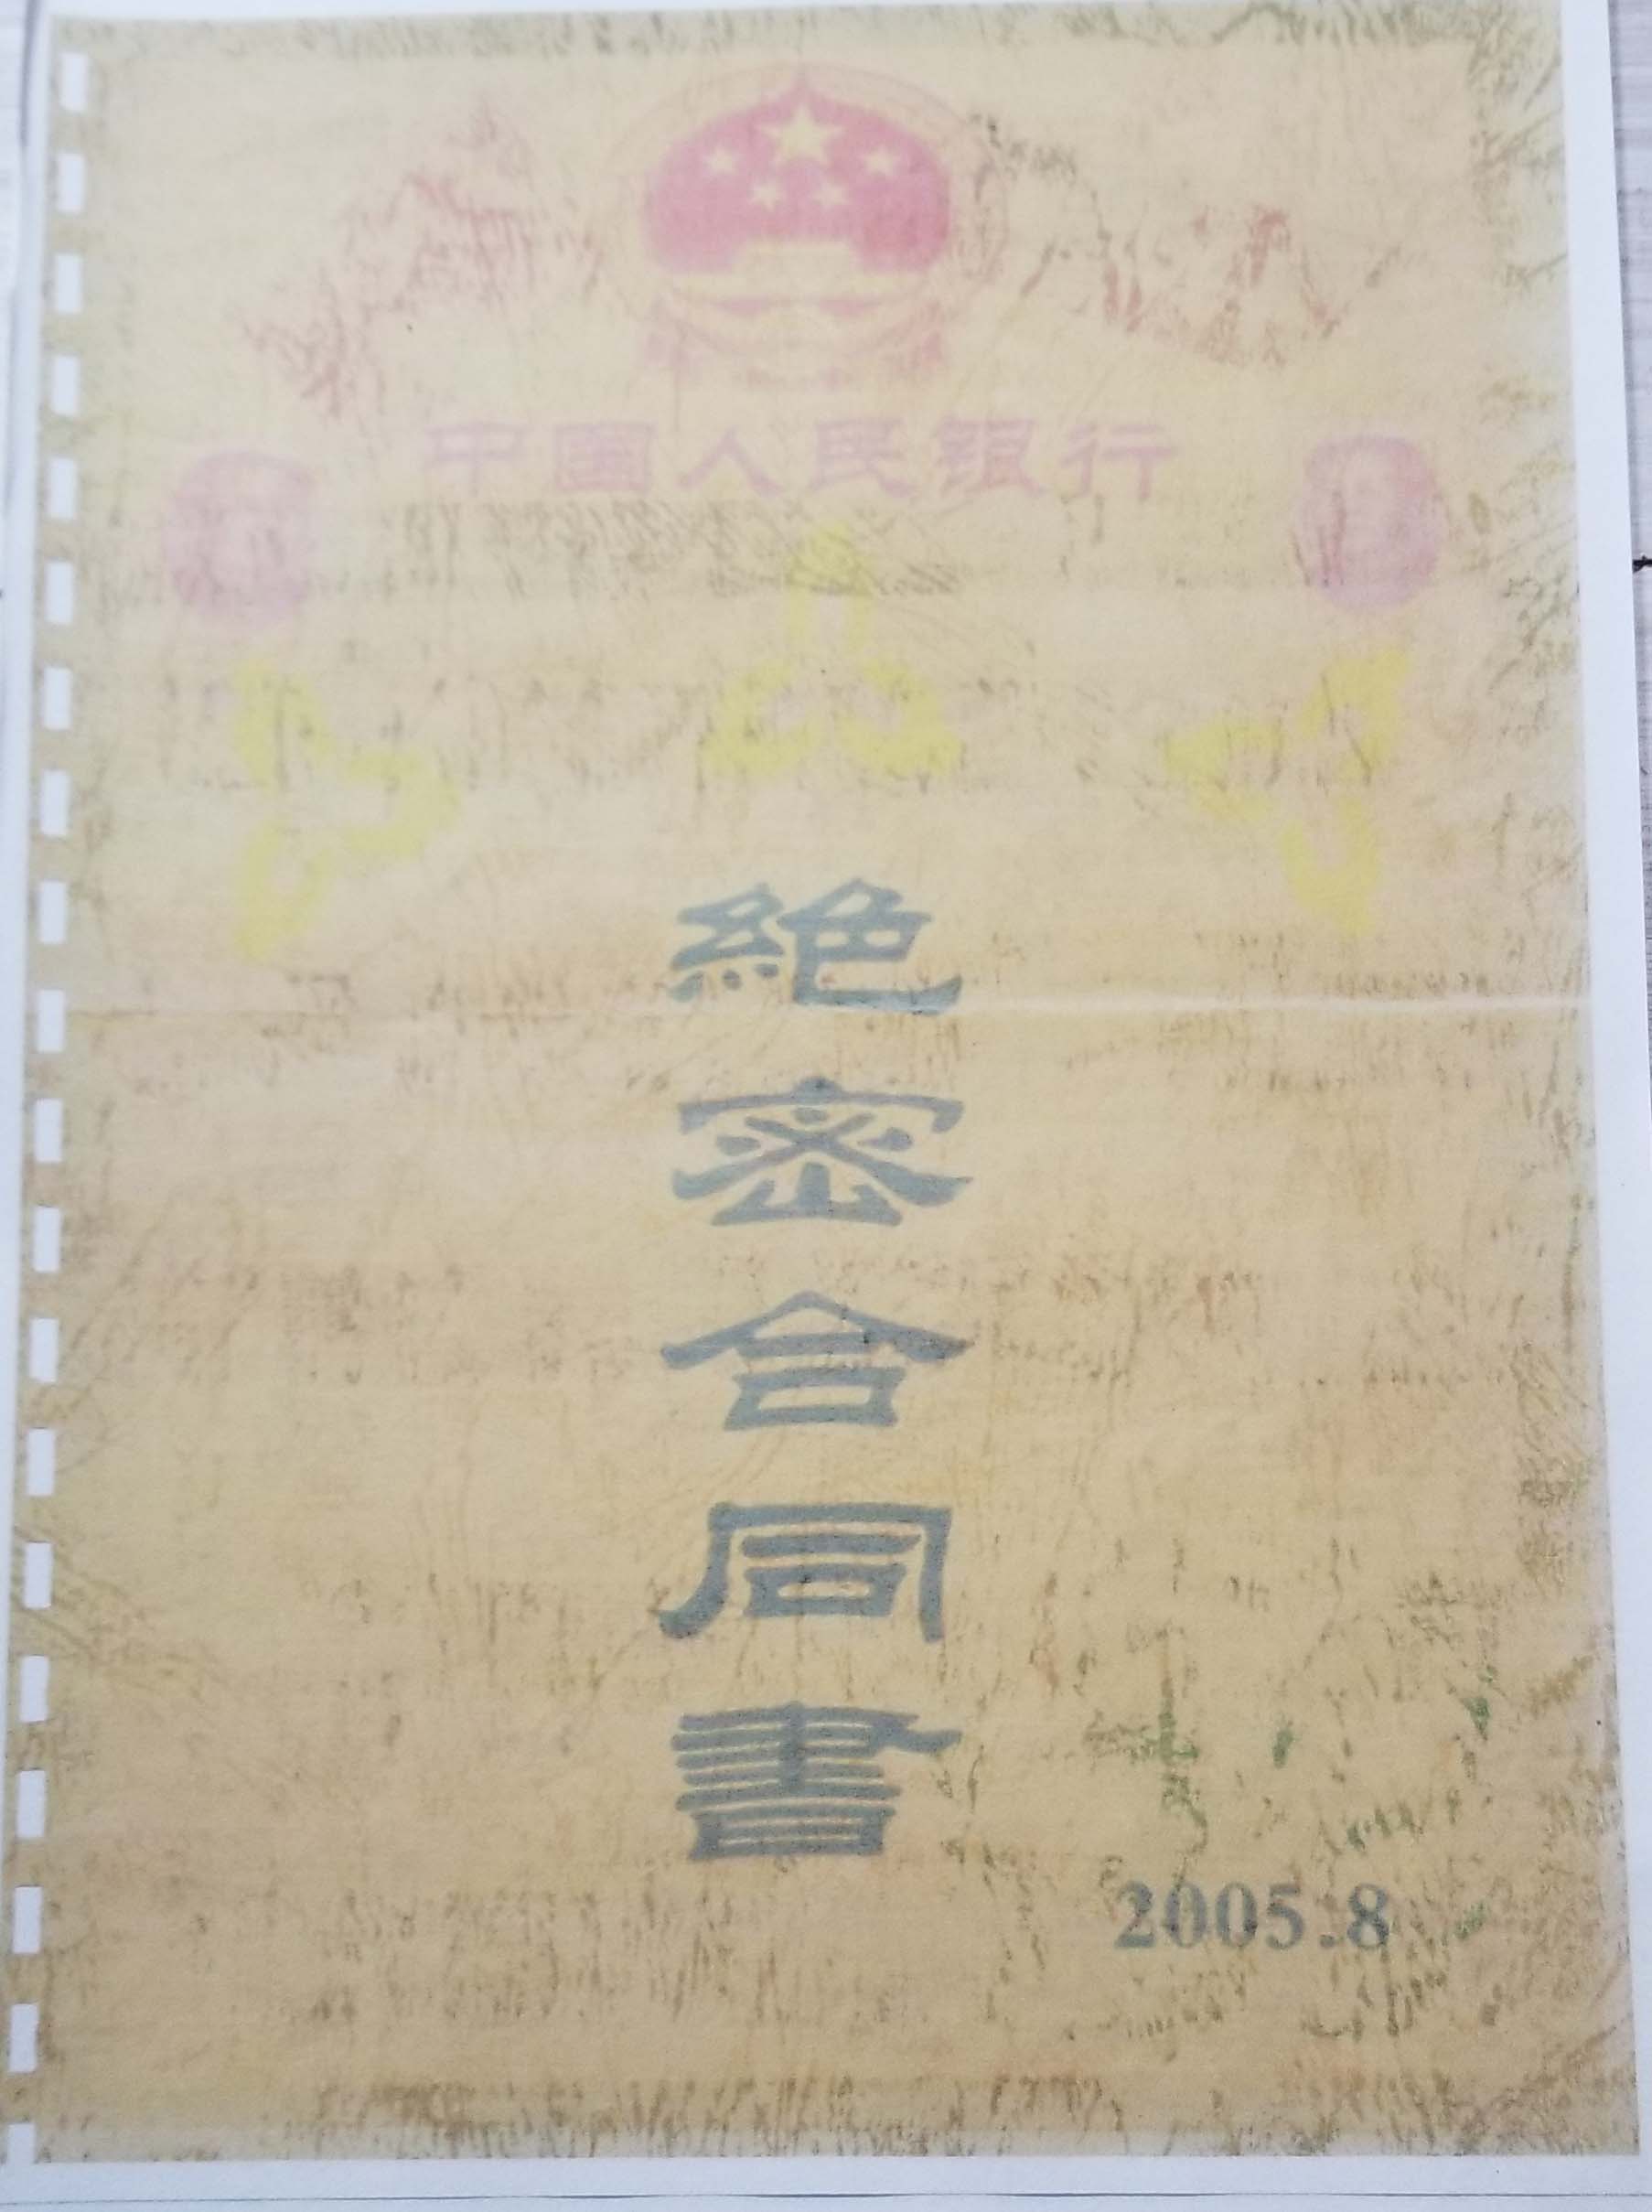 中国人民银行
絕密合同書
2005.8